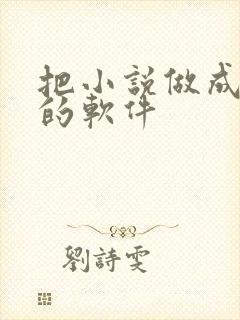 把小説做成
的軟件
劉詩雯